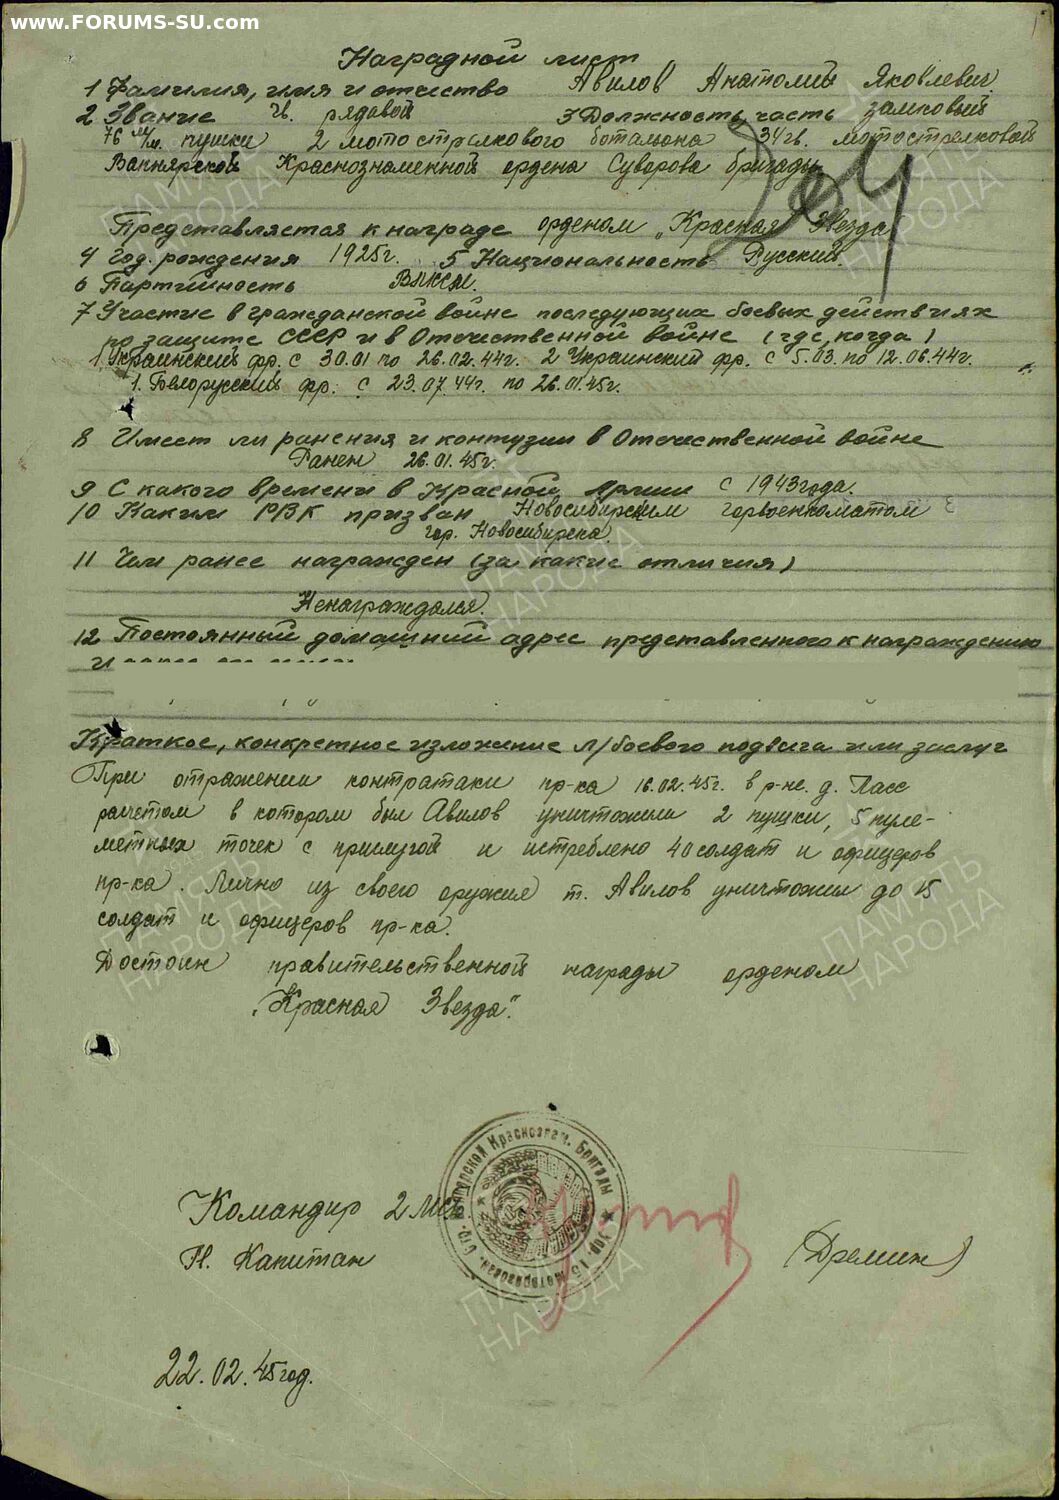 www.FORUMS-SU.com
Наградной лист
1 Фамилия, имя и отчество Авилов Анатолий Яковлевич
2 Звание гв. рядовой 3 Должность часть замковый
76 м/м. пушки 2 мотострелкового батальона 34 гв. мотострелковой
Вапнярской Краснознаменной ордена Суворова бригады
Представляется к награде орденом „Красная Звезда"
4 Год. рождения 1925г. 5 Национальность Русский.
6 Партийность Влксм.
7 Участие в гражданской войне последующих боевых действиях
по защите СССР и в Отечественной войне (где, когда)
1. Украинский фр. с 30.01 по 26.02.44г. 2 Украинский фр. с 5.03. по 12.06.44г.
1. Белорусский фр. с 23.07.44г. по 26.01.45г.
8 Имеет ли ранения и контузии в Отечественной войне
Ранен 26.01.45г.
9 С какого времени в Красной Армии с 1943 года.
10 Каким РВК призван Новосибирским горвоенкоматом
гор. Новосибирска.
11 Чем ранее награжден (за какие отличия)
Ненаграждался.
12 Постоянный домашний адрес представленного к награждению
Краткое, конкретное изложение л/боевого подвига или заслуг
При отражении контратаки пр-ка 16.02.45г. в р-не. д. Пасс
расчетом в котором был Авилов уничтожили 2 пушки, 5 пуле-
метных точек с прислугой и истреблено 40 солдат и офицеров
пр-ка. Лично из своего оружия т. Авилов уничтожил до 15
солдат и офицеров пр-ка.
Достоин правительственной награды орденом
„Красная Звезда".
Командир 2
Гв. Капитан (Дремин)
22.02.45 год.
ПАМЯТЬ НАРОДА